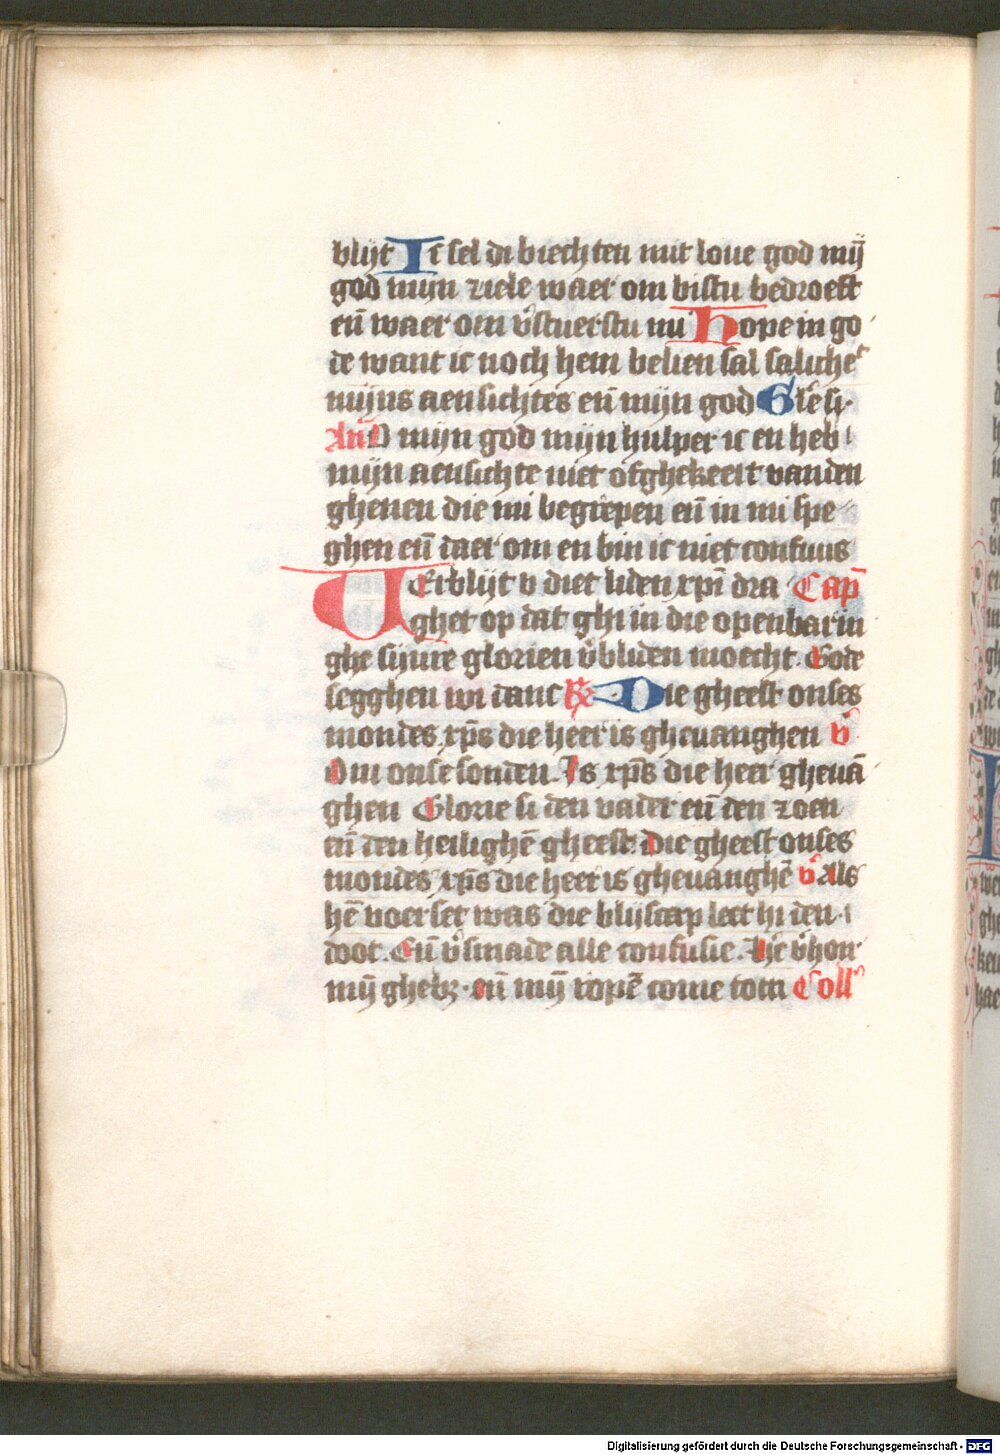 blijt Ic sel di biechten mit loue god mij
god mijn ziele waer om bistu bedroeft
eñ waer om v̉stuerstu mi Hope in go
de want ic noch hem belien sal saliche
mijns aensichtes eñ mijn god Glẻ si
Añ O mijn god mijn hulper ic en heb
mijn aensichte niet ofghekeert vanden
ghenen die mi begrepen eñ in mi spe
ghen eñ daer om en bin ic niet confuus
VErblijt v diet liden xpi dra Cap
ghet op dat ghi in die openbarin
ghe sijnre glorien v̉bliden moecht. Gode
segghen wi danc R Die gheest onses
mondes xps die heer is gheuanghen v̉
Om onse sonden. Is xps die heer gheuā
ghen Glorie si den vader eñ den zoen
eñ den heilighē gheest Die gheest onses
mondes xps die heer is gheuanghē v̉ Als
hē voerset was die blijscap leet hi den
doot. Eñ v̉smade alle confusie. Hẻ v̉hoer
mij ghebz. eñ mij ropē come totti Coll
Digitalisierung gefördert durch die Deutsche Forschungsgemeinschaft - DFG